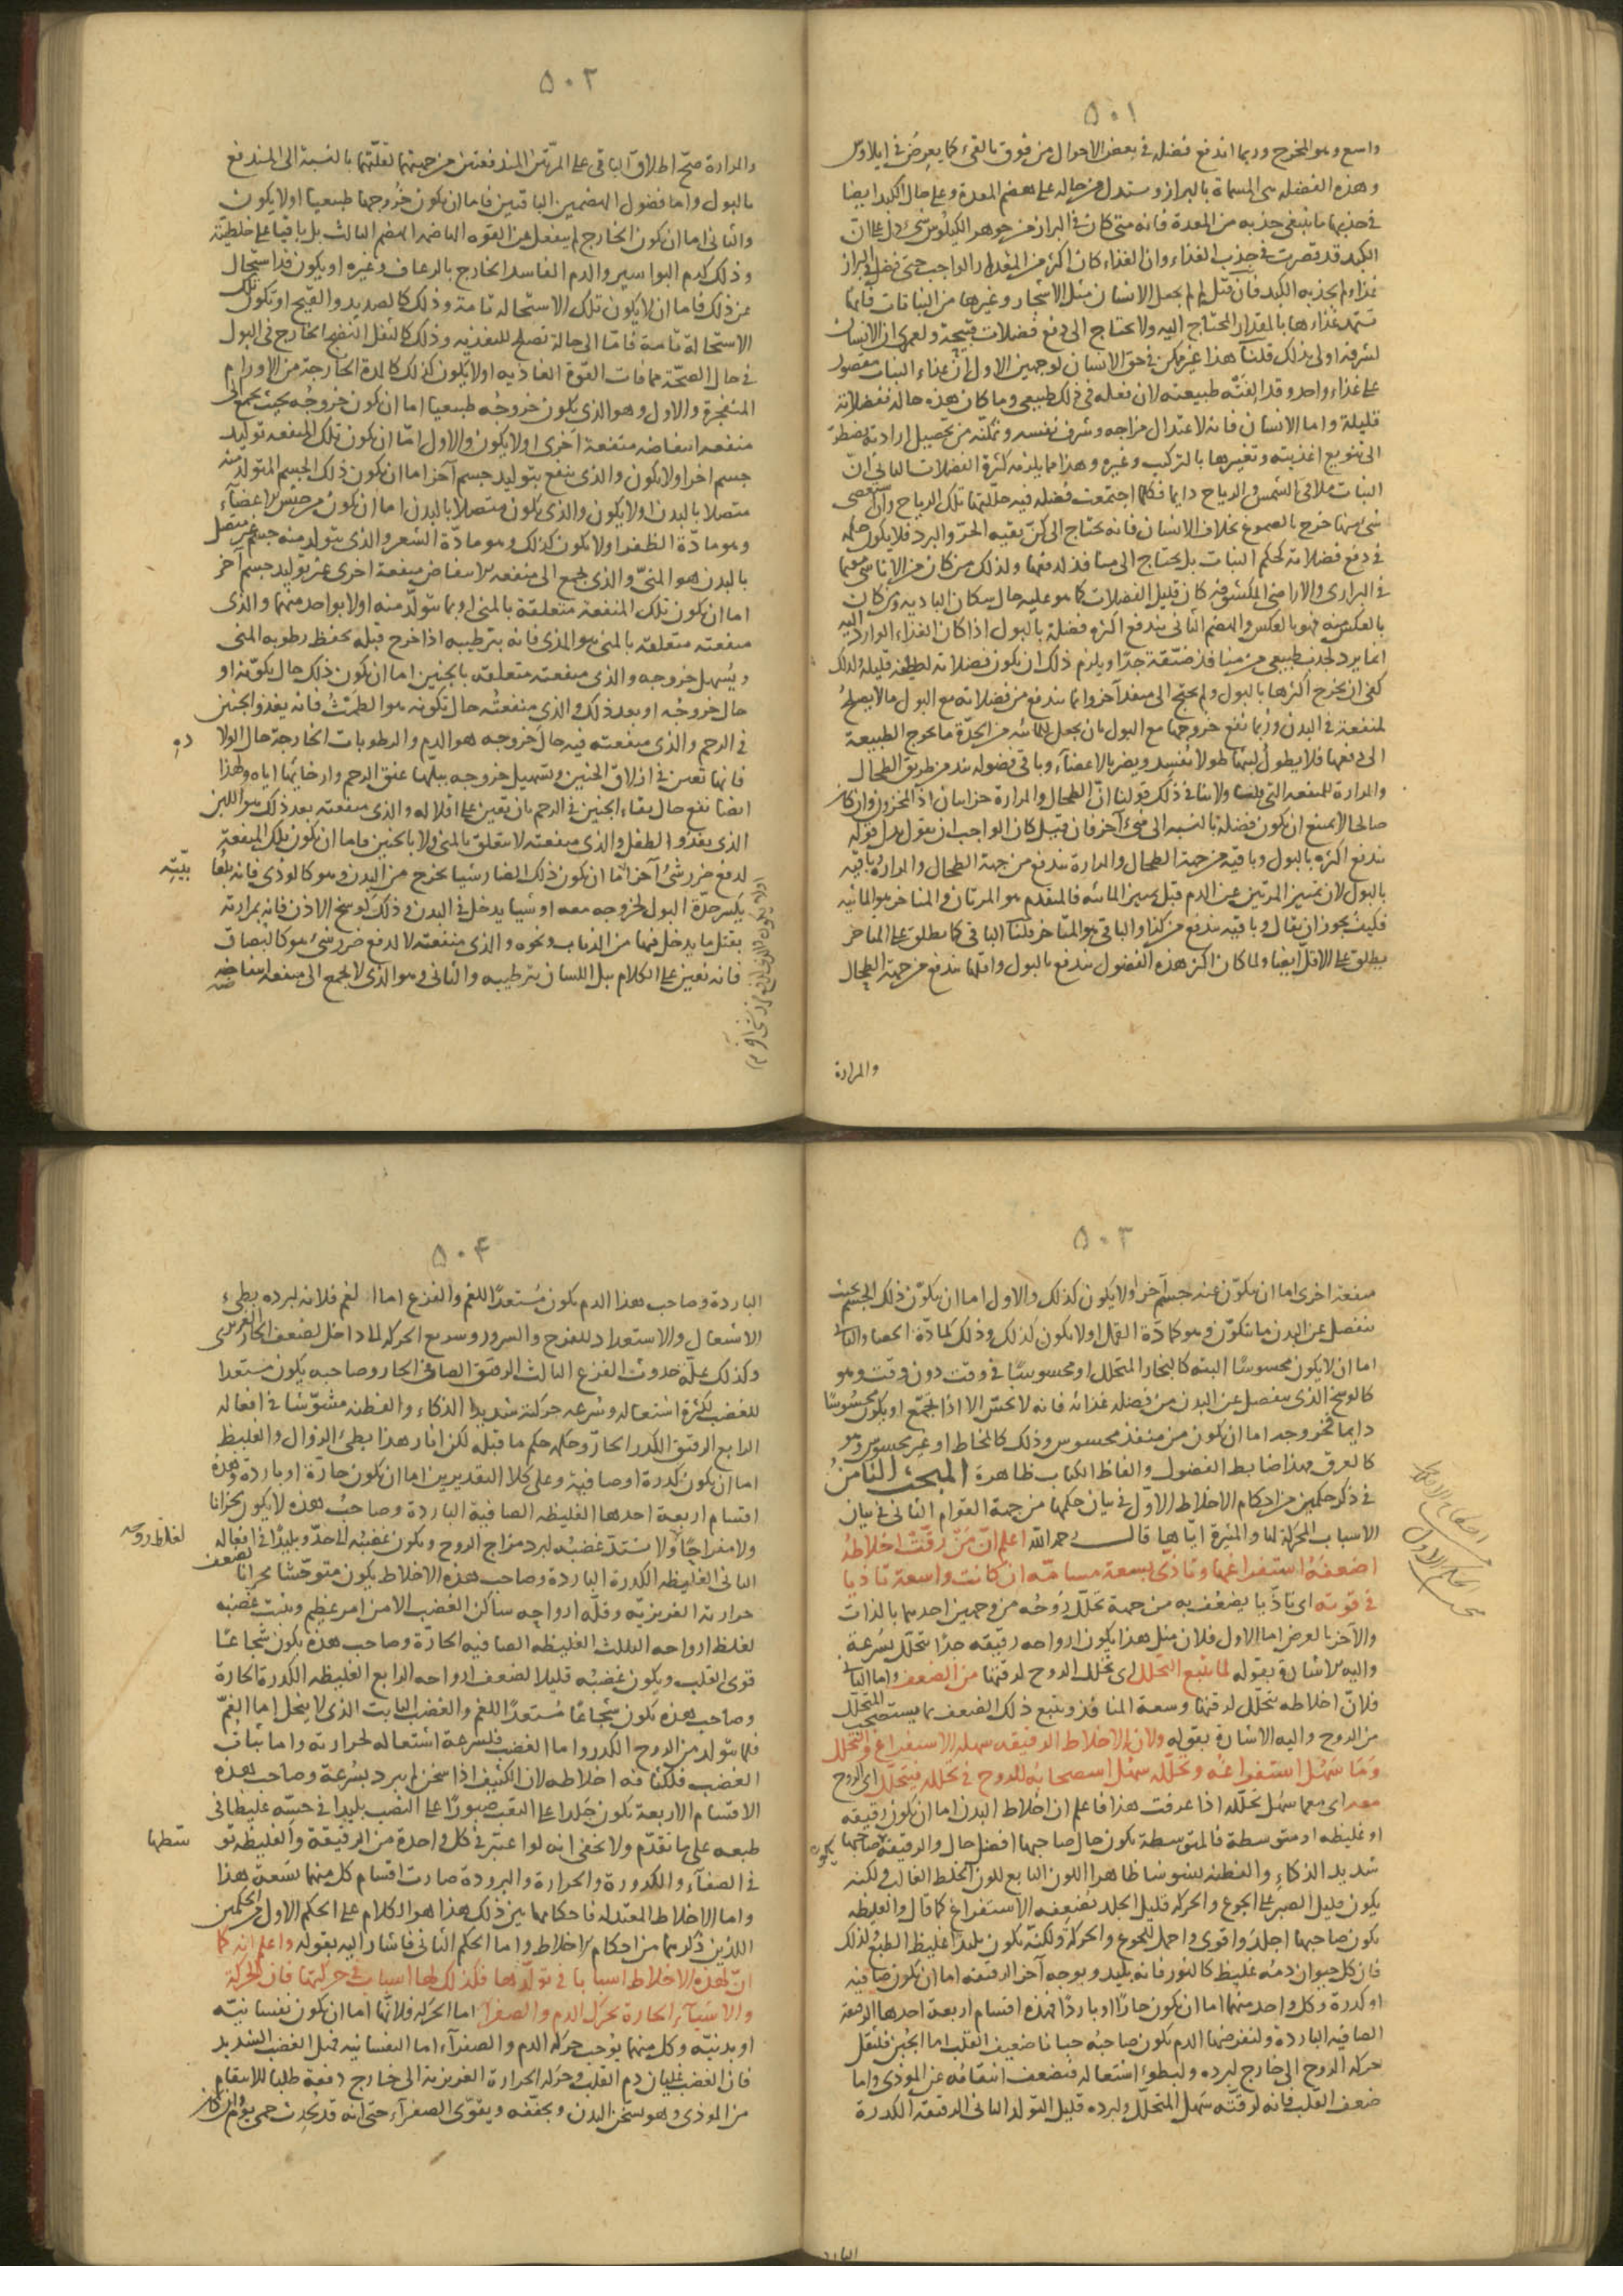 ٥٠١
واسع وهو المخرج وربما اندفع فضله فى بعض الاحوال من فوق بالقىء كما يعرض فى ايلاوس
وهذه الفضله هى المسماة بالبراز ويستدل من حاله على هضم المعدة وعلى حال الكبد ايضا
فى جذبها ما ينبغى جذبه من المعدة فانه متى كان فى البراز من جوهر الكيلوس شىء دل على انّ
الكبد قد قصرت فى جذب الغذاء وان الغذاء كان اكثر من المقدار الواجب حتى فضل فى البراز
غذاء لم يجذبه الكبد فان قيل لم لم يجعل الانسان مثل الاشجار وغيرها من النباتات فانها
تستمد غذاءها بالمقدار المحتاج اليه ولا يحتاج الى دفع فضلات قبيحة ولعمرى ان الانسان
لشرفه اولى بذلك قلنا هذا غير ممكن فى حق الانسان لوجهين الاول انّ غذاء النبات مقصور
على غذاء واحد وقد الفَتْه طبيعته لان فعله فى ذلك طبيعى وما كان هذه حاله ففضلاته
قليلة واما الانسان فانه لاعتدال مزاجه وشرف نفسه وتمكنه من تحصيل ارادته يضطرّ
الى تنويع اغذيته وتغييرها بالتركيب وغيره وهذا مما يلزمه كثرة الفضلات الثانى انّ
النبات ملاقى الشمس والرياح دايما فكلما اجتمعت فضله فيه حلّلتها تلك الرياح وان استعصى
شىء منها خرج بالصموغ بخلاف الانسان فانه يحتاج الى كنّ يقيه الحرّ والبرد فلا يكون حكمه
فى دفع فضلاته كحكم النبات بل يحتاج الى منافذ لدفعها ولذلك من كان من الاناسى مقيما
فى البرارى والاراضى المكشوفه كان قليل الفضلات كما هو عليه حال سكان الباديه ومن كان
بالعكس منه فهو بالعكس والهضم الثانى يندفع اكثر فضلة بالبول اذا كان الغذاء الوارد اليه
انما يرد لجذب طبيعى من منافذ ضيّقة جدّا ويلزم ذلك ان يكون فضلاته لطيفه قليلة ولذلك
كفى ان يخرج اكثرها بالبول ولم يحتج الى منفذ آخر وانما يندفع من فضلاته مع البول ما لا يصلح
لمنفعة فى البدن وربما نفع خروجها مع البول بان يجعل للمائيه من الحدّة ما يحوج الطبيعة
الى دفعها فلا يطول لبثها طولا يُفسِد ويضر بالاعضآء وباقى فضوله يندفع من طريق الطحال
والمرارة للمنفعه التى ولا ينافى ذلك قولنا انّ الطحال والمرارة خزانتان اذ المخزون وان كان
صالحا لا يمتنع ان يكون فضلة بالنسبه الى شىء آخر فان قيل كان الواجب ان يقول بدل قوله
يندفع اكثره بالبول وباقيه من جهة الطحال والمرارة يندفع من جهة الطحال والمرارة وباقيه
بالبول لان تميّز المرتين عن الدم قبل تميز المائيه فالمتقدم هو المرتان والمتاخر هو المائيه
فكيف يجوز ان يقال وباقيه يندفع من كذا والباقى هو المتأخر قلنا الباقى كما يطلق على المتاخر
يطلق على الاقل ايضا ولما كان اكثر هذه الفضول يندفع بالبول واقلها يندفع من جهة الطحال
والمرارة
٥٠٢
والمرارة صحّ اطلاق الباقى على المرّتين المندفعتين من جهتهما لقلّتهما بالنسبة الى المندفع
بالبول واما فضول الهضمين الباقيين فاما ان يكون خروجها طبيعيا اولا يكون
والثانى اما ان يكون الخارج لم ينفعل عن القوه الهاضمه الهضم الثالث بل باقيا على خلطيّته
وذلك كدم البواسير والدم الفاسد الخارج بالرعاف وغيره او يكون قد استحال
عن ذلك فاما ان لا يكون تلك الاستحاله تامة وذلك كالصديد والقيح او تكون تلك
الاستحالة تامة فامّا الى حالة تصلح للتغذيه وذلك كالثفل النضج الخارج فى البول
فى حال الصحّة مما فات القوّة الغاذيه اولا يكون كذلك كالمدة الخارجة من الاورام
المنفجرة والاول وهو الذى يكون خروجه طبيعيا اما ان يكون خروجُه بحيث يجمع الى
منفعه انتفاضه منفعة اخرى اولا يكون والاول امّا ان يكون تلك المنفعه توليد
جسم اخر اولا يكون والذى ينفع بتوليد جسم آخر اما ان يكون ذلك الجسم المتولد منه
متصلا بالبدن اولا يكون والذى يكون متصلا بالبدن اما ان يكون من جنس الاعضآء
وهو مادّة الظفر اولا يكون كذلك وهو مادّة الشعر والذى يتولد منه جسم غير متصل
بالبدن هو المنىّ والذى يجمع الى منفعه الانتفاض منفعة اخرى غير توليد جسم آخر
اما ان يكون تلك المنفعة متعلقة بالمنى او بما يتولّد منه اولا بواحد منهما والذى
منفعته متعلقه بالمنى هو المذى فانه بترطيبه اذا خرج قبله يحفظ رطوبه المنى
ويُسهل خروجه والذى منفعته متعلقه بالجنين اما ان يكون ذلك حال تكوّنه او
حال خروجُه او بعد ذلك والذى منفعتُه حال تكونه هو الطمث فانه يغذو الجنين
فى الرحم والذى منفعته فيه حال خروجه هو الدم والرطوبات الخارجة حال الولا
دهِ
فانها تعين فى ازلاق الجنين وتسهيل خروجه ببلّها عنق الرحم وارخائها اياه ولهذا
ايضا نفع حال بقاء الجنين فى الرحم بان يعين على اقلاله والذى منفعته بعد ذلك هو اللبن
الذى يغذو الطفل والذى منفعته لا يتعلق بالمنى ولا بالجنين فاما ان يكون تلك المنفعة
لدفع ضرر شىءٍ آخر امّا ان يكون ذلك الضار شيا يخرج من البدن وهو كالوذى فانه بلعا
بيّتِه
يكسر حدّة البول لخروجه معه او شيا يدخل فى البدن وذلك كوسخ الاذن فانه بمرارته
يقتل ما يدخل فيها من الذباب ونحوه والذى منفعته لا لدفع ضرر شىء هو كالبصاق
فانه يعين على الكلام ببل اللسان بترطيبه والثانى وهو الذى لا يجمع الى منفعه انتفاضه
٥٠٣
منفعة اخرى اما ان يتكوّن عنه جسم آخر اولا يكون كذلك والاول اما ان يكون ذلك الجسم بحيث
ينفصل عن البدن ما يتكوّن وهو كمادّة القمل اولا يكون كذلك وذلك كمادّة الحصا والثانى
اما ان لا يكون محسوسًا البته كالبخار المتحلل او محسوسًا فى وقت دون وقت وهو
كالوسخ الذى ينفصل عن البدن من فضله غذائه فانه لا يحسّ الا اذا تجمّع او يكون محسُوسًا
دايما فخروجه اما ان يكون من منفذ محسوس وذلك كالمخاط او غير محسوس وهو
كالعرق فهذا ضابط الفضول والفاظ الكتاب ظاهرة المبحث الثامن
فى ذكر حكمين من احكام الاخلاط الاوّل فى بيان حكمها من جهة القوام الثانى فى بيان
الاسباب المحركة لها والمثيرة ايّاها قال رحمه الله اعلم انّ مَن رقّت اخلاطُه
اضعفهُ استفراغها وتأذّى بسعة مسامّه ان كانت واسعة تأذيا
فى قوته اى تاذّيا يضعُف به من جهة تحلّل رُوحُه من وجهين احدهما بالذات
والآخر بالعرض اما الاول فلان مثل هذا يكون ارواحه رقيقه جدّا تتحلّل بسُرعة
واليه الاشارة بقوله لما يتبع التحلّل اى تحلّل الروح لرقتها من الضعف واما الثانى
فلانّ اخلاطه تتحلّل لرقتها وسعة المنافذ ويتبع ذلك الضعف بما يستصحب المتحلّل
من الروح واليه الاشارة بقوله ولان الاخلاط الرقيقه سهله الاستفراغ والتحلل
وَمَا سَهُل استفراغه وتحلّله سهُل استصحابُه للروح فى تحلله فيتحلّل اى الروح
معه اى مع ما سهُل تحلّله اذا عرفت هذا فاعلم ان اخلاط البدن اما ان يكون رقيقه
او غليظه او متوسطة فالمتوسطة يكون حال صاحبها افضل حال والرقيقة صاحبها يكون
شديد الذكاء والفطنه ظاهر اللون التابع للون الخلط الغالب ولكنه
يكون قليل الصبر على الجوع والحركه قليل الجلد يُضعِفه الاستفراغ كما قال والغليظه
يكون صاحبها اجلدَ واقوى واحمل للجوع والحركة ولكنّه يكون بليدًا غليظ الطبع ولذلك
فان كل حيوان دمُه غليظ كالثور فانه بليد وبوجه آخر الرقيقه اما ان يكون صافيه
او كدرة وكل واحد منهما اما ان يكون حارّا او باردًا فهذه اقسام اربعة احدها الرقيقة
الصافيه الباردة ولنفرضها الدم يكون صاحبُه جبانا ضعيف القلب اما الجُبن فلثقل
حركه الروح الى خارج لبرده ولبطؤ اشتعاله فيضعف انتقامُه عن الموذى واما
ضعف القلب فانه لرقّته سَهل التحلّل ولبرده قليل التولد الثانى الرقيقه الكدرة
البارد
٥٠۴
الباردة وصاحب هذا الدم يكون مُستعدّا للغم والفزع اما الغم فلانه لبرده بطىء
الاشتعال والاستعداد للفرح والسرور وسريع الحركه الى داخل لضعف الحار الغريزى
وكذلك علّة حدوث الفزع الثالث الرقيق الصافى الحار وصاحبه يكون مستعدا
للغضب لكثرة اشتعاله وسُرعه حركته شديد الذكاء والفطنه مشوّشا فى افعاله
الرابع الرقيق الكدر الحارّ وحكمه حكم ما قبله لكن اثار هذا بطىء الزوال والغليظ
اما ان يكون كدرة او صافية وعلى كلا التقديرين اما ان يكون حارّة او باردة وهذه
اقسام اربعة احدها الغليظه الصافية الباردة وصاحبُ هذه لا يكون محزانا
ولا مفراحًا ولا يشتدّ غضبُه لبرد مزاج الروح ويكون غضبُه الى حدّ وبليدًا فى افعاله
لغلظ روحه
الثانى الغليظه الكدرة الباردة وصاحب هذه الاخلاط يكون متوحّشا محزانا لضعف
حرارته الغريزيّه وقلّه ارواحِه ساكن الغضب الا من امر عظيم ويثبت غضبُه
لغلظ ارواحه الثالث الغليظه الصافيه الحارّة وصاحب هذه يكون شجاعًا
قوى القلب ويكون غضبُه قليلا لضعف ارواحه الرابع الغليظه الكدرة الحارة
وصاحب هذه يكون شجاعًا مُستعدّا للغم والغضب الثابت الذى لا ينحل اما الغمّ
فلما يتولد من الروح الكدر واما الغضب فلسرعة اشتعاله لحرارته واما ثبات
الغضب فلكثافه اخلاطه لان الكثيف اذا سخن لم يبرد بسُرعة وصاحب هذه
الاقسام الاربعة يكون جَلدا على التعب صبورًا على النصب بليدا فى حسّه غليظا فى
طبعه على ما تقدّم ولا يخفى انه لو اعتبر فى كل واحدة من الرقيقة والغليظه تو
سّطها
فى الصفآء والكدورة والحرارة والبرودة صارت اقسام كل منهما تسعةً هذا
واما الاخلاط المعتدله فاحكامها بين ذلك هذا هو الكلام على الحكم الاول من الحكمين
اللذين ذكرهما من احكام الاخلاط واما الحكم الثانى فاشار اليه بقوله واعلم انه كما
انّ لهذه الاخلاط اسبابا فى تولّدها فكذلك لها اسباب فى حركتها فان الحركة
والاشيآء الحارة يحرّك الدم والصفرآ اما الحركه فلانّها اما ان يكون نفسانيّه
او بدنيّه وكل منهما يوُجب حركه الدم والصفرآء اما النفسانيه فمثل الغضب الشديد
فان الغضب غليان دم القلب وحركه الحرارة الغريزية الى خارج دفعة طلبا للانتقام
من الموذى وهو يسخن البدن ويجفّفه ويقوّى الصفرآء حتى انه قد يُحدِث حمى يوم وان كان